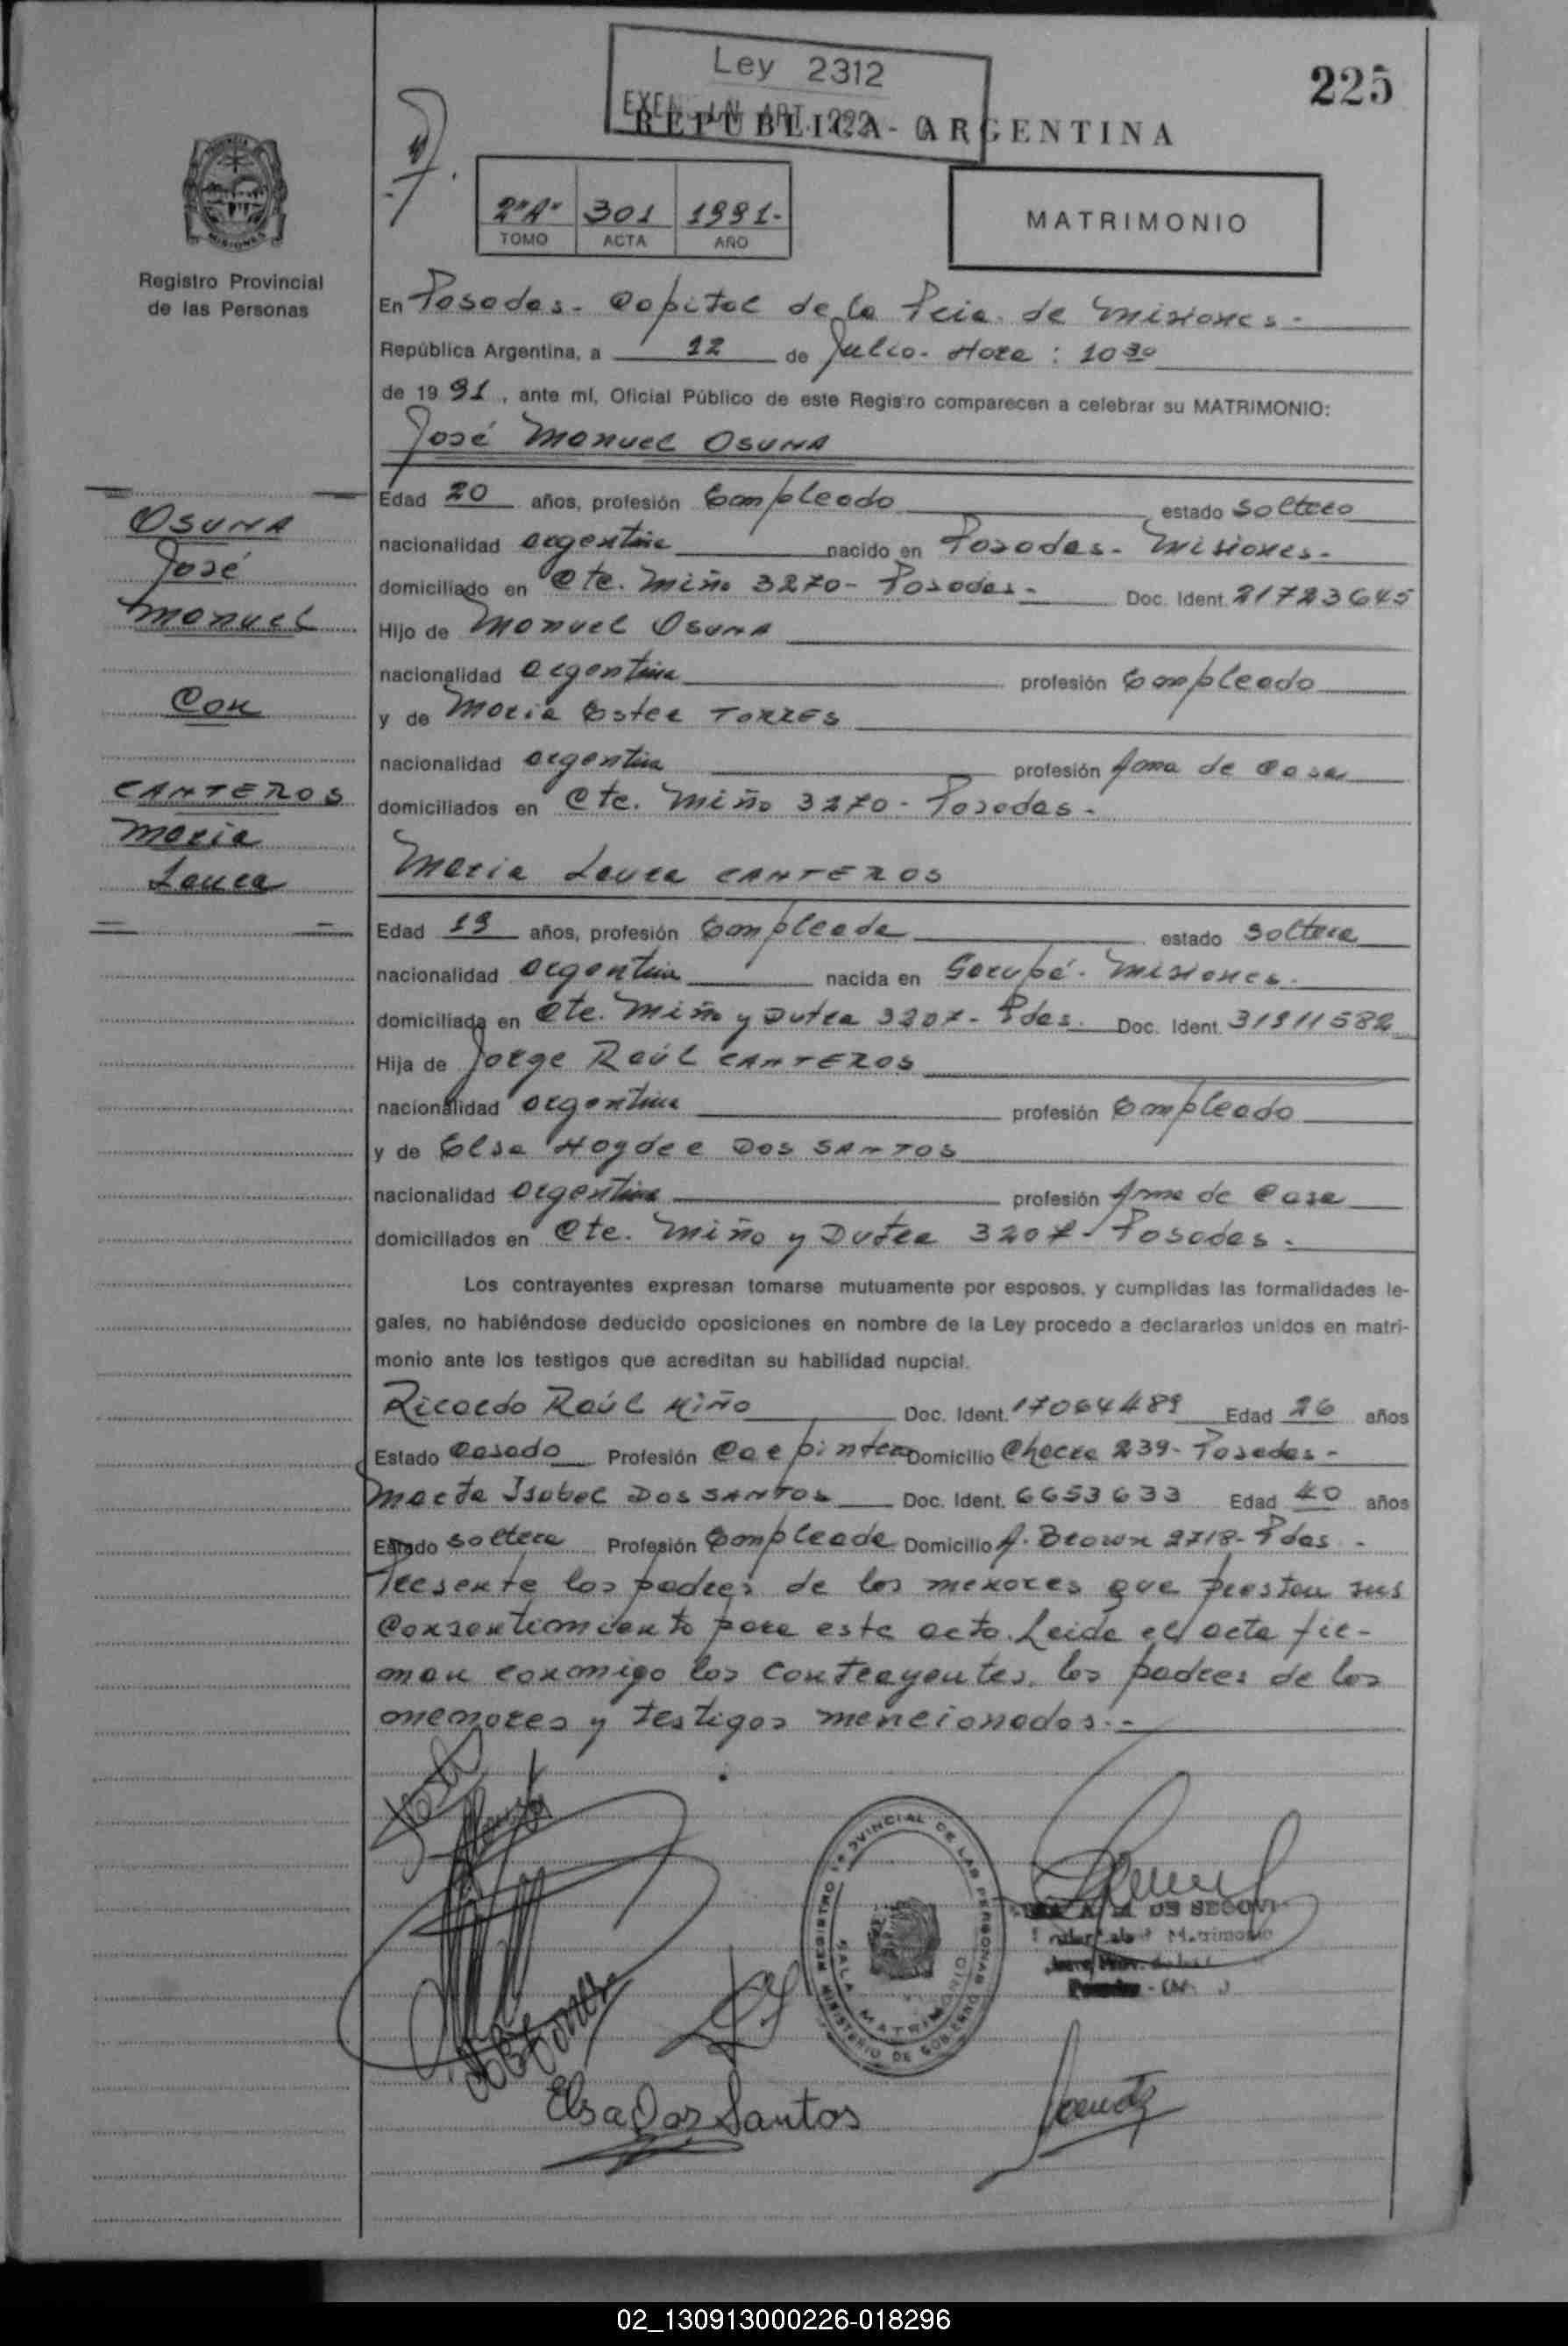 225
Ley 2312
REPUBLICA ARGENTINA
2º "A" 301 1991.-
TOMO ACTA AÑO
MATRIMONIO
MISIONES
Registro Provincial
de las Personas
En Posadas - Capital de la Pcia. de Misiones.-
República Argentina, a 12 de Julio - Hora: 10 30
de 19 91, ante mí, Oficial Público de este Registro comparecen a celebrar su MATRIMONIO:
José Manuel OSUNA
Edad 20 años, profesión Empleado estado soltero
nacionalidad argentina nacido en Posadas - Misiones.-
domiciliado en Cte. Miño 3270 - Posadas.- Doc. Ident. 21723645
Hijo de Manuel OSUNA
nacionalidad argentina profesión Empleado
y de María Ester TORRES
nacionalidad argentina profesión Ama de Casa
domiciliados en Cte. Miño 3270 - Posadas.-
OSUNA
José
Manuel
Con
CANTEROS
María
Laura
María Laura CANTEROS
Edad 19 años, profesión Empleada estado soltera
nacionalidad argentina nacida en Garupá - Misiones.
domiciliada en Cte. Miño y Dutra 3207 - Pdas. Doc. Ident. 31911582
Hija de Jorge Raúl CANTEROS
nacionalidad argentina profesión Empleado
y de Elsa Haydee DOS SANTOS
nacionalidad argentina profesión Ama de Casa
domiciliados en Cte. Miño y Dutra 3207 - Posadas.-
Los contrayentes expresan tomarse mutuamente por esposos, y cumplidas las formalidades le-
gales, no habiéndose deducido oposiciones en nombre de la Ley procedo a declararlos unidos en matri-
monio ante los testigos que acreditan su habilidad nupcial.
Ricardo Raúl MIÑO Doc. Ident. 17064489 Edad 26 años
Estado Casado Profesión Carpintero Domicilio Checra 239 - Posadas.-
Marta Isabel DOS SANTOS Doc. Ident. 6653633 Edad 40 años
Estado soltera Profesión Empleada Domicilio A. Brown 2718 - Pdas.-
Presente los padres de los menores que prestan sus
Consentimiento para este acto. Leida el acta fir-
man conmigo los Contrayentes, los padres de los
menores y testigos mencionados.-
REGISTRO PROVINCIAL DE LAS PERSONAS
SALA MATRIMONIO
MINISTERIO DE GOBIERNO
DE SEGOVI
Matrimonio
Elsa Dos Santos
02_130913000226-018296